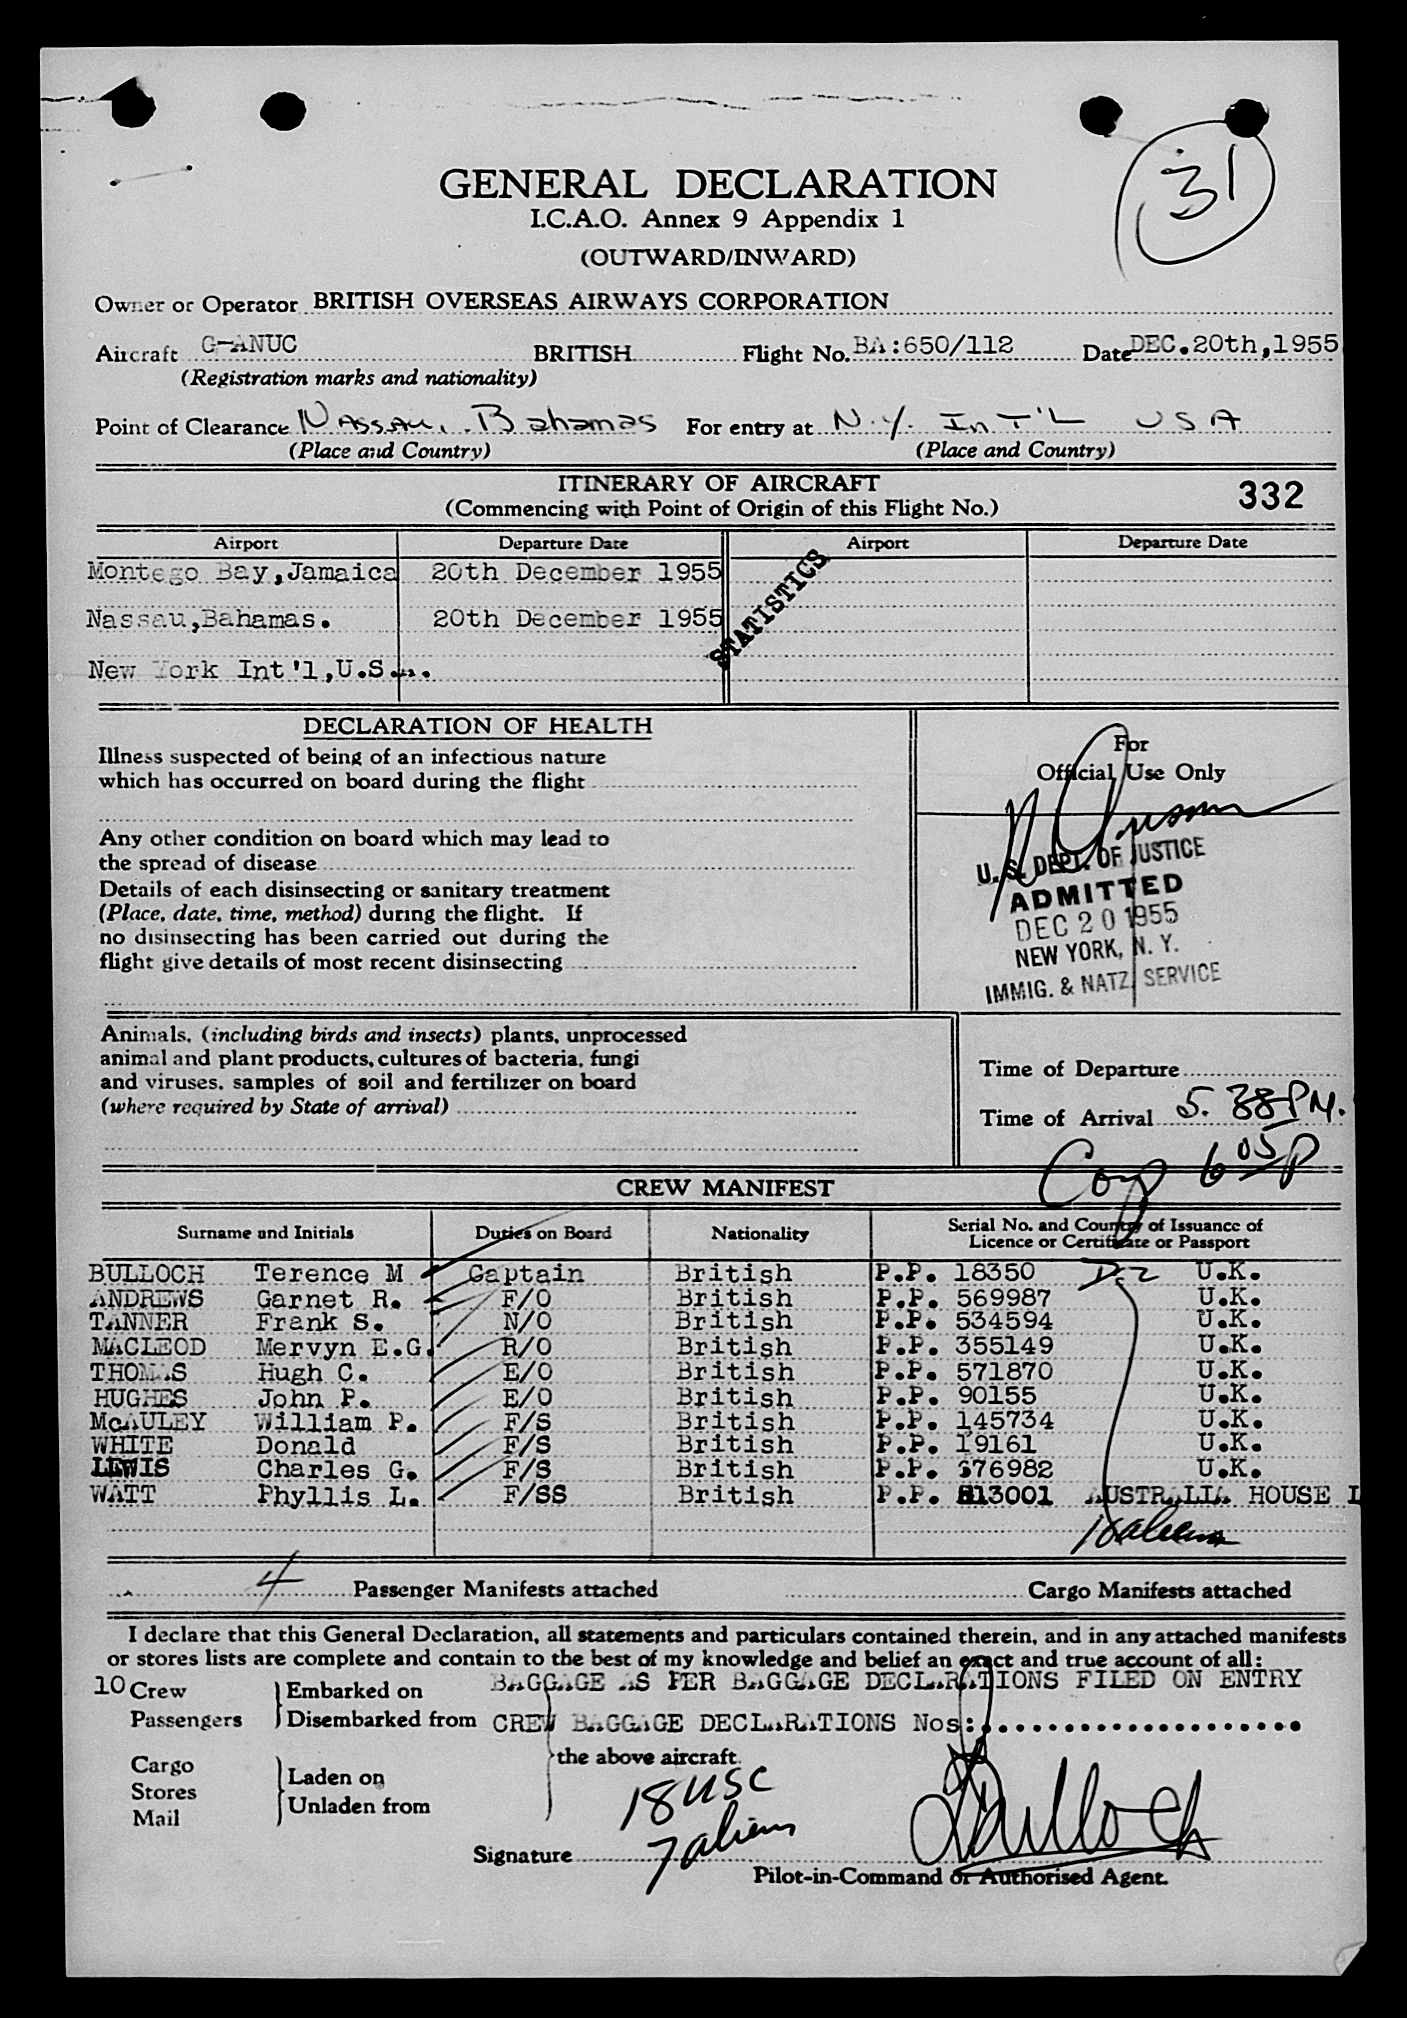 31
GENERAL DECLARATION
I.C.A.O. Annex 9 Appendix 1
(OUTWARD/INWARD)
Owner or Operator BRITISH OVERSEAS AIRWAYS CORPORATION
Aircraft G-ANUC BRITISH Flight No. BA:650/112 Date DEC.20th,1955
(Registration marks and nationality)
Point of Clearance Nassau, Bahamas For entry at N.Y. Int'l USA
(Place and Country) (Place and Country)
ITINERARY OF AIRCRAFT
(Commencing with Point of Origin of this Flight No.) 332
Airport Departure Date Airport Departure Date
Montego Bay,Jamaica 20th December 1955
STATISTICS
Nassau,Bahamas. 20th December 1955
New York Int'l,U.S.A.
DECLARATION OF HEALTH
Illness suspected of being of an infectious nature
which has occurred on board during the flight
Any other condition on board which may lead to
the spread of disease
Details of each disinsecting or sanitary treatment
(Place, date, time, method) during the flight. If
no disinsecting has been carried out during the
flight give details of most recent disinsecting
For
Official Use Only
U. S. DEPT. OF JUSTICE
ADMITTED
DEC 20 1955
NEW YORK, N. Y.
IMMIG. & NATZ. SERVICE
Animals, (including birds and insects) plants, unprocessed
animal and plant products, cultures of bacteria, fungi
and viruses, samples of soil and fertilizer on board
(where required by State of arrival)
Time of Departure
Time of Arrival 5.38 PM.
6 05 P
CREW MANIFEST
Surname and Initials Duties on Board Nationality Serial No. and Country of Issuance of
Licence or Certificate or Passport
BULLOCH Terence M Captain British P.P. 18350 D-2 U.K.
ANDREWS Garnet R. F/O British P.P. 569987 U.K.
TANNER Frank S. N/O British P.P. 534594 U.K.
MACLEOD Mervyn E.G. R/O British P.P. 355149 U.K.
THOMAS Hugh C. E/O British P.P. 571870 U.K.
HUGHES John P. E/O British P.P. 90155 U.K.
McAULEY William P. F/S British P.P. 145734 U.K.
WHITE Donald F/S British P.P. 19161 U.K.
LEWIS Charles G. F/S British P.P. 376982 U.K.
WATT Phyllis L. F/SS British P.P. 813001 AUSTRALIA HOUSE L
10 aliens
4 Passenger Manifests attached Cargo Manifests attached
I declare that this General Declaration, all statements and particulars contained therein, and in any attached manifests
or stores lists are complete and contain to the best of my knowledge and belief an exact and true account of all:
10 Crew Embarked on BAGGAGE AS PER BAGGAGE DECLARATIONS FILED ON ENTRY
Passengers Disembarked from CREW BAGGAGE DECLARATIONS Nos:.....................
the above aircraft.
Cargo
Stores Laden on
Mail Unladen from
18 USC
7 aliens
Signature TBulloch
Pilot-in-Command or Authorised Agent.